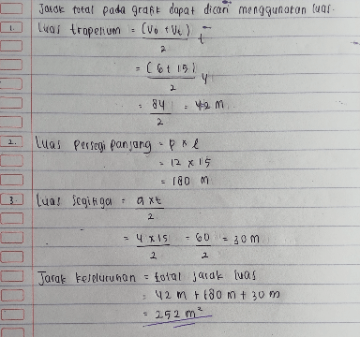 Jarak total pada grafik dapat dicari menggunakan luas.
1. Luas trapesium = (Vo + Vt) t
2
= (6 + 15) 4
2
= 84 = 42 m
2
2. Luas persegi panjang = p x l
= 12 x 15
= 180 m
3. Luas segitiga = a x t
2
= 4 x 15 = 60 = 30 m
2 2
Jarak keseluruhan = total jarak luas
= 42 m + 180 m + 30 m
= 252 m²